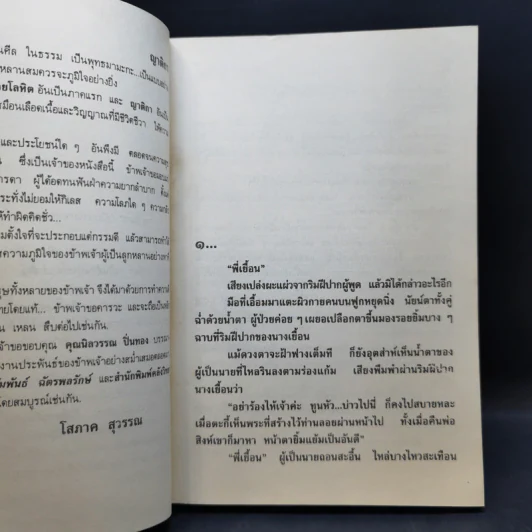 ญาติกา
นศีล ในธรรม เป็นพุทธมามะกะ...เป็นแบบอย่าง
หลานสมควรจะภูมิใจอย่างยิ่ง
ยโลหิต อันเป็นภาคแรก และ ญาติกา อันเป็น
สมือนเลือดเนื้อและวิญญาณที่มีชีวิตชีวา ได้
และประโยชน์ใด ๆ อันพึงมี ตลอดจนความ
น ซึ่งเป็นเจ้าของหนังสือนี้ ข้าพเจ้าขอมอบ
ารดา ผู้ได้อดทนฟันฝ่าความยากลำบาก ตั้งแต่
ระทั่งไม่ยอมให้กิเลส ความโลภใด ๆ ความ
ห้ทำผิดคิดชั่ว...
มตั้งใจที่จะประกอบแต่กรรมดี แล้วสามารถทำได้
ความภูมิใจของข้าพเจ้าผู้เป็นลูกหลานอย่าง
ษทั้งหลายของข้าพเจ้า จึงได้มาด้วยการทำความ
ายโดยแท้... ข้าพเจ้าขอคารวะ และจะถือเป็น
น เหลน สืบต่อไปเช่นกัน.
จ้าขอขอบคุณ คุณนิลวรรณ ปิ่นทอง บรรณา
งานประพันธ์ของข้าพเจ้าอย่างสม่ำเสมอตลอด
มพันธ์ ฉัตรพลรักษ์ และสำนักพิมพ์คลังวิทยา
โดยสมบูรณ์เช่นกัน.
โสภาค สุวรรณ
๑...
“พี่เยื้อน”
เสียงเปล่งผะแผ่วจากริมฝีปากผู้พูด แล้วมิได้กล่าวอะไรอีก
มือที่เอื้อมมาแตะผิวกายคนบนฟูกหยุดนิ่ง นัยน์ตาทั้งคู่
ฉ่ำด้วยน้ำตา ผู้ป่วยค่อย ๆ เผยอเปลือกตาขึ้นมองรอยยิ้มบาง ๆ
ฉาบที่ริมฝีปากของนางเยื้อน
แม้ดวงตาจะฝ้าฟางเต็มที ก็ยังอุตส่าห์เห็นน้ำตาของ
ผู้เป็นนายที่ไหลรินลงตามร่องแก้ม เสียงพึมพำผ่านริมฝีปาก
นางเยื้อนว่า
“อย่าร้องไห้เจ้าค่ะ ทูนหัว...บ่าวไปนี่ ก็คงไปสบายหละ
เมื่อตะกี้เห็นพระที่สร้างไว้ท่านลอยผ่านหน้าไป ทั้งเมื่อคืนพ่อ
สิงห์เขาก็มาหา หน้าตายิ้มแย้มเป็นอันดี”
“พี่เยื้อน” ผู้เป็นนายถอนสะอื้น ไหล่บางไหวสะเทือน